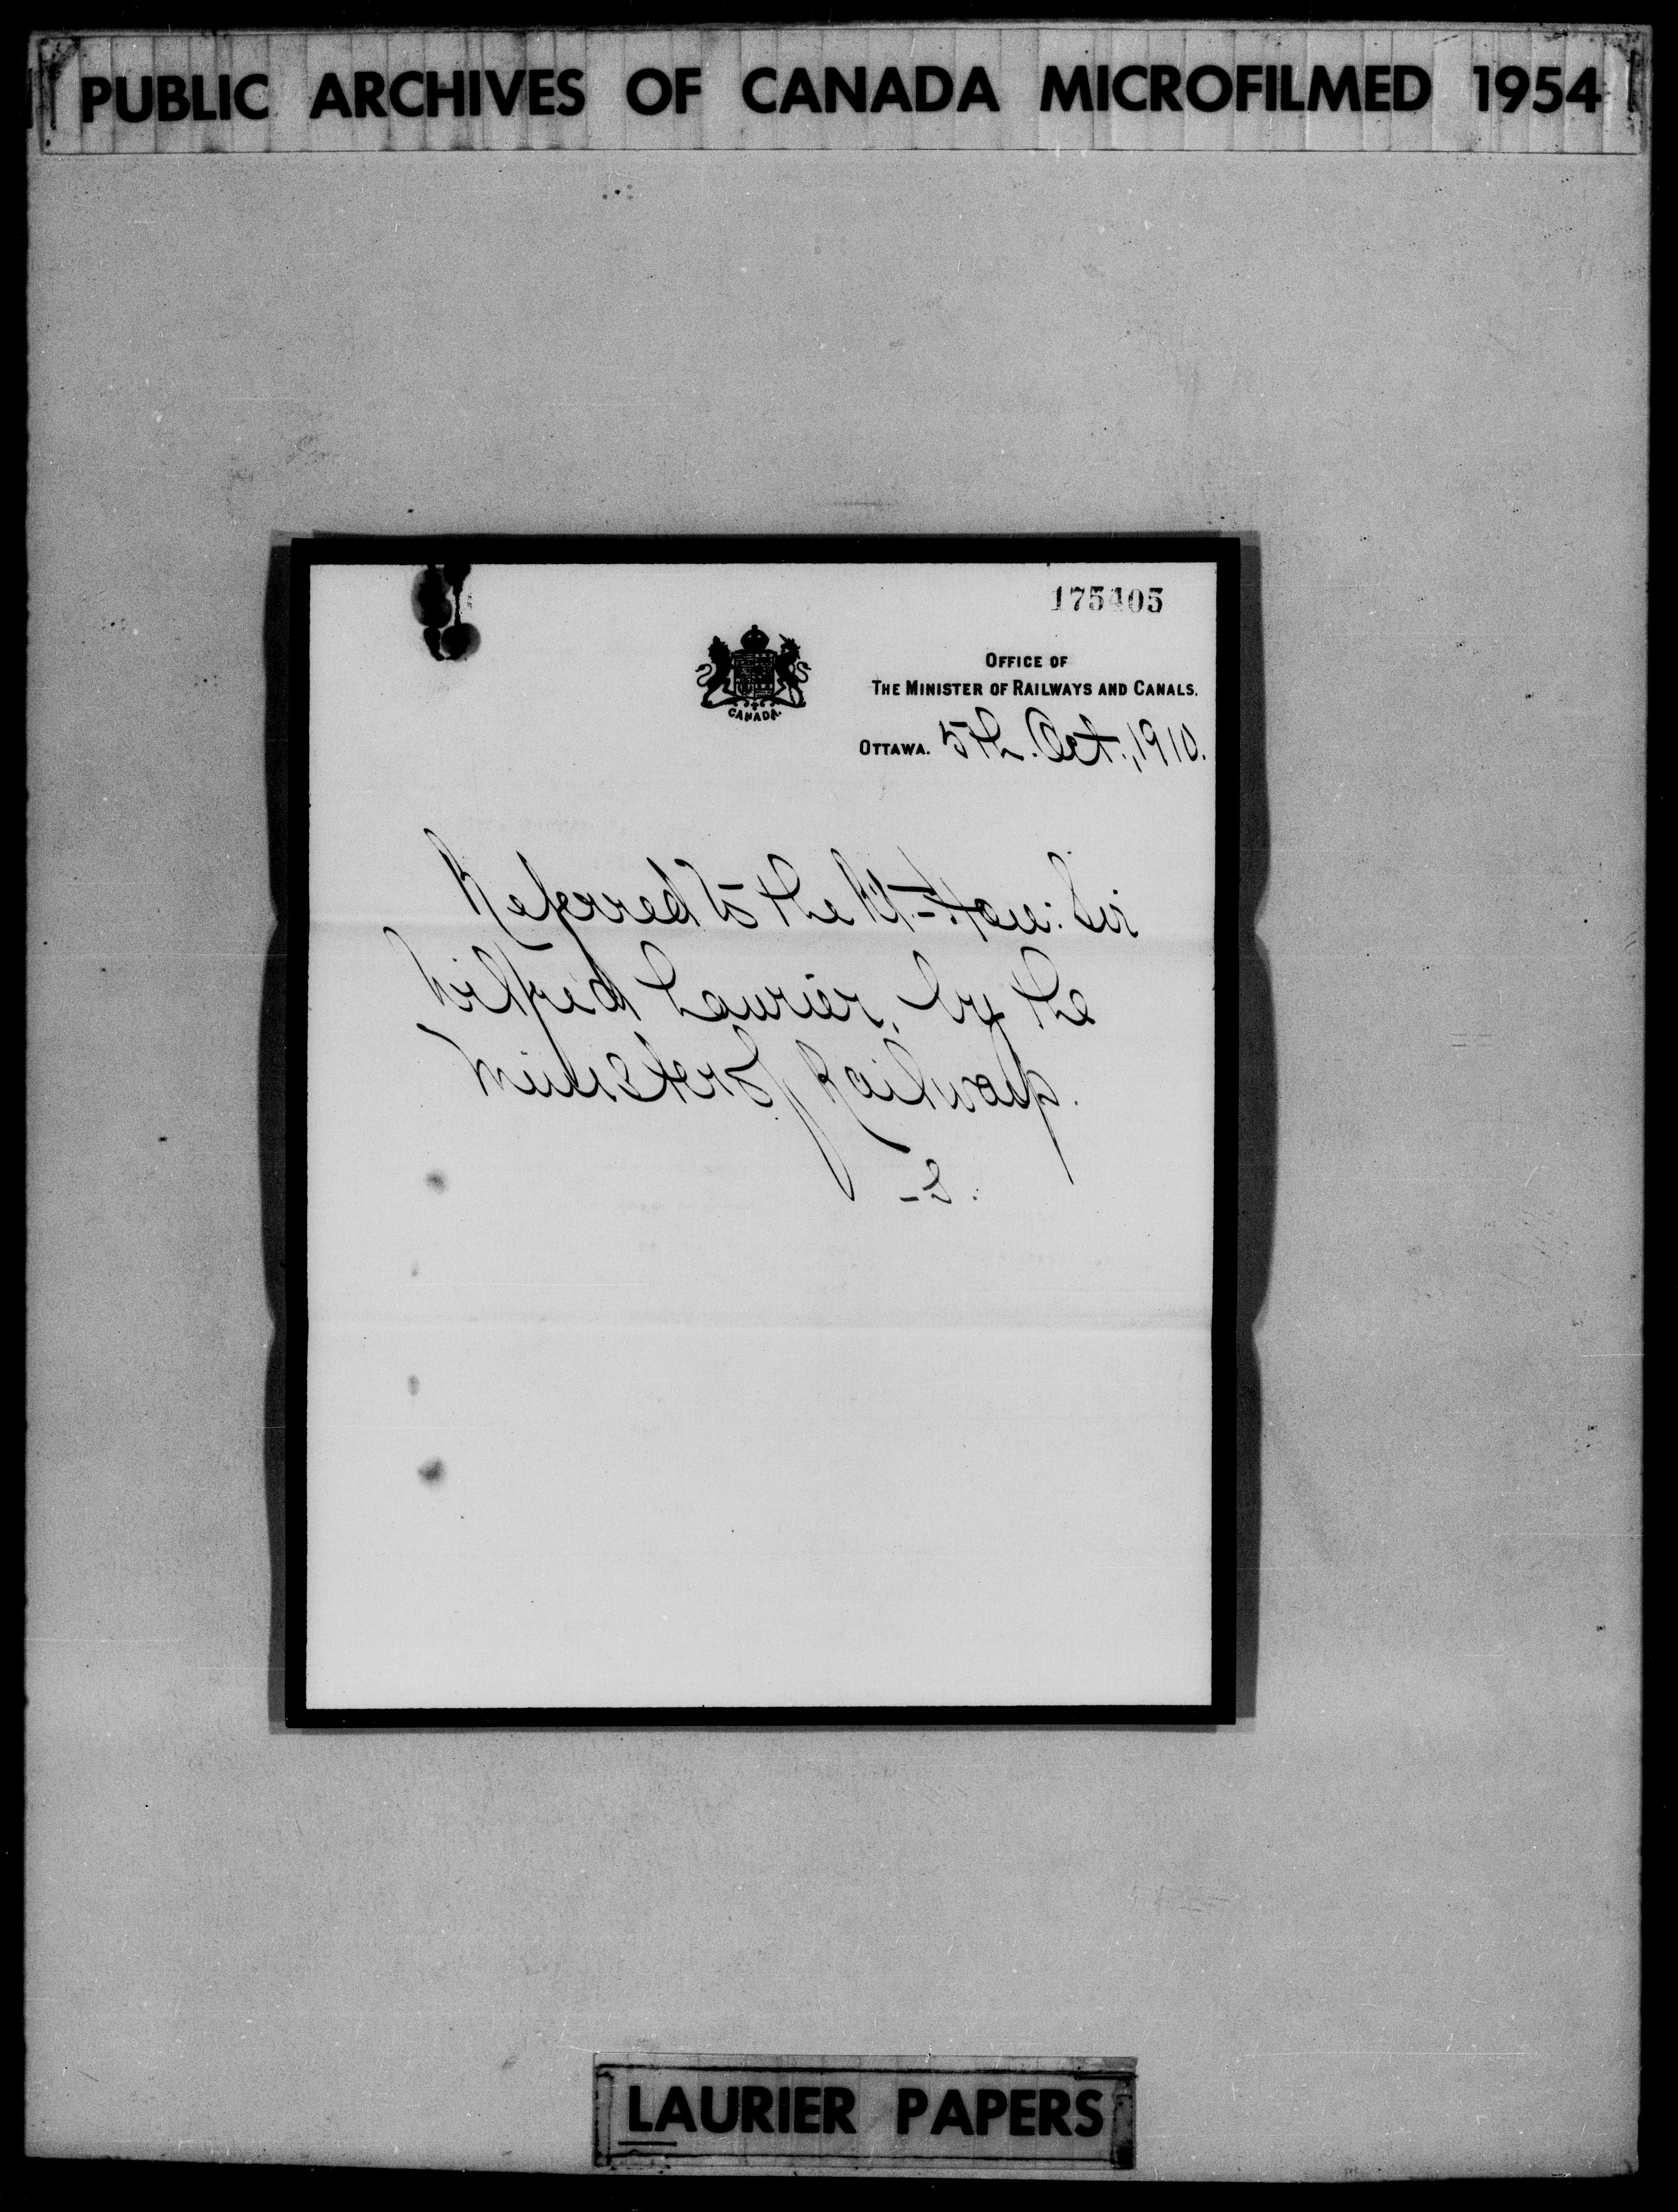 PUBLIC ARCHIVES OF CANADA MICROFILMED 1954
175405
CANADA.
OFFICE OF
THE MINISTER OF RAILWAYS AND CANALS.
OTTAWA. 5th. Oct., 1910.
Referred to the Rt.-Hon: Sir
Wilfrid Laurier, by the
Minister of Railways.
-S.
LAURIER PAPERS